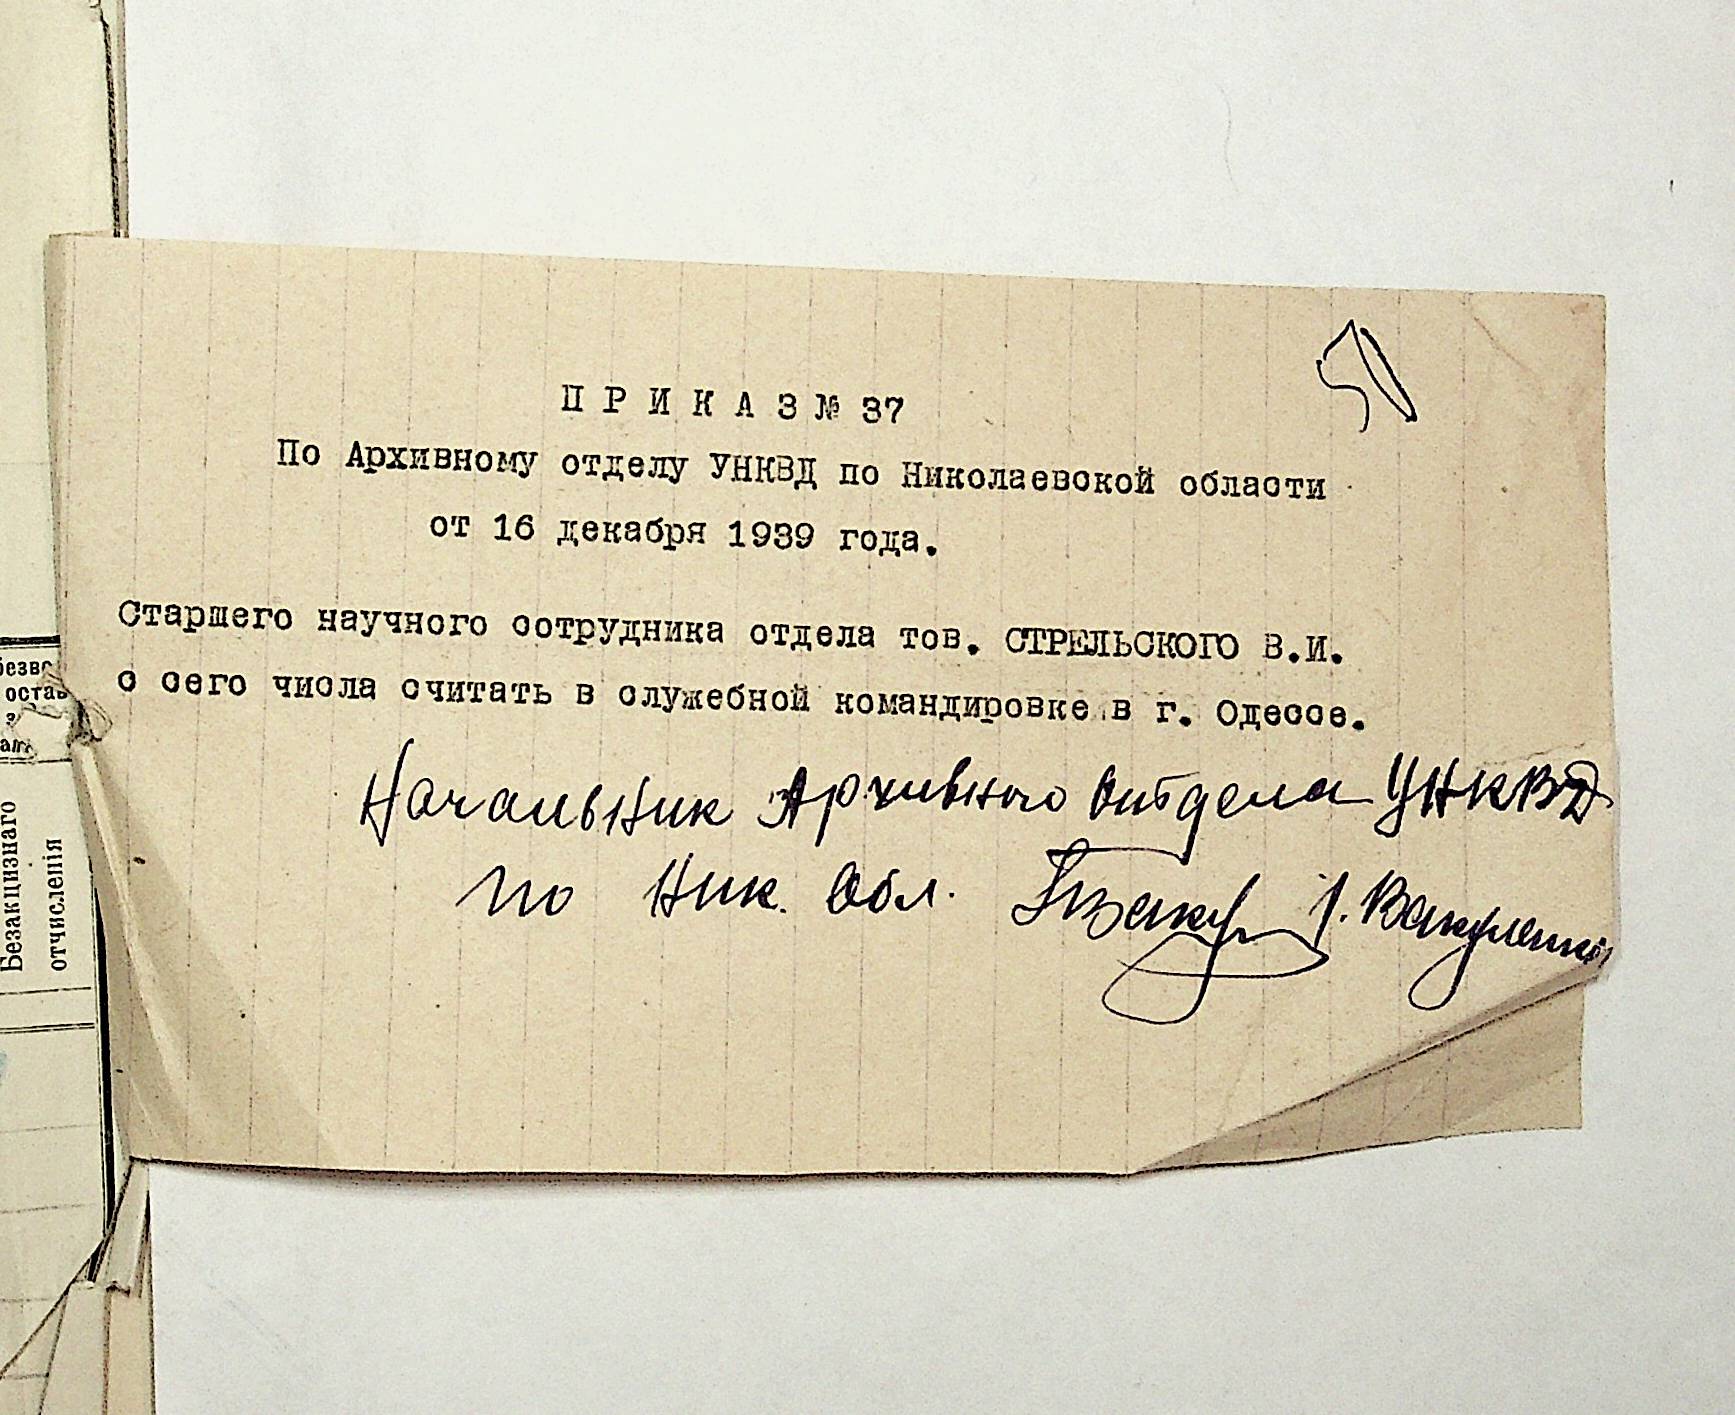 П Р И К А З № 37
По Архивному отделу УНКВД по Николаевской области
от 16 декабря 1939 года.
Старшего научного сотрудника отдела тов. СТРЕЛЬСКОГО В.И.
с сего числа считать в служебной командировке в г. Одессе.
Начальник Архивного Отдела УНКВД
по Ник. Обл. Вакуленко
Безакцизнаго
отчисленія